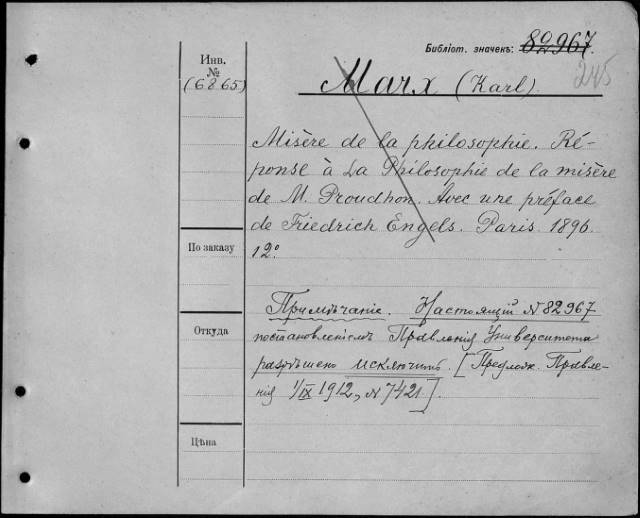 Библіот. значекъ: 82967.
245
Инв.
№
(6865)
Marx (Karl).
Misère de la philosophie. Ré-
ponse à La Philosophie de la misère
de M. Proudhon. Avec une préface
de Friedrich Engels. Paris. 1896.
12°
По заказу
Примѣчаніе. Настоящій N 82967
Откуда
постановленіемъ Правленія Университета
разрѣшено исключить. [Предлож. Правле-
нія 1/IX 1912, N 7421].
Цѣна